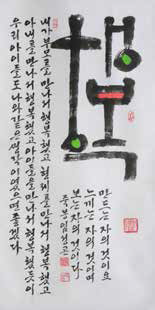 행복
만드는 자의 것이요
느끼는 자의 것이며
보는 자의 것이다
내가 부모를 만나서 행복했고 형제를 만나서 행복했고
아내를 만나서 행복했고 아이들을 만나서 행복했듯이
우리 아이들도 나와 같은 생각이었으면 좋겠다